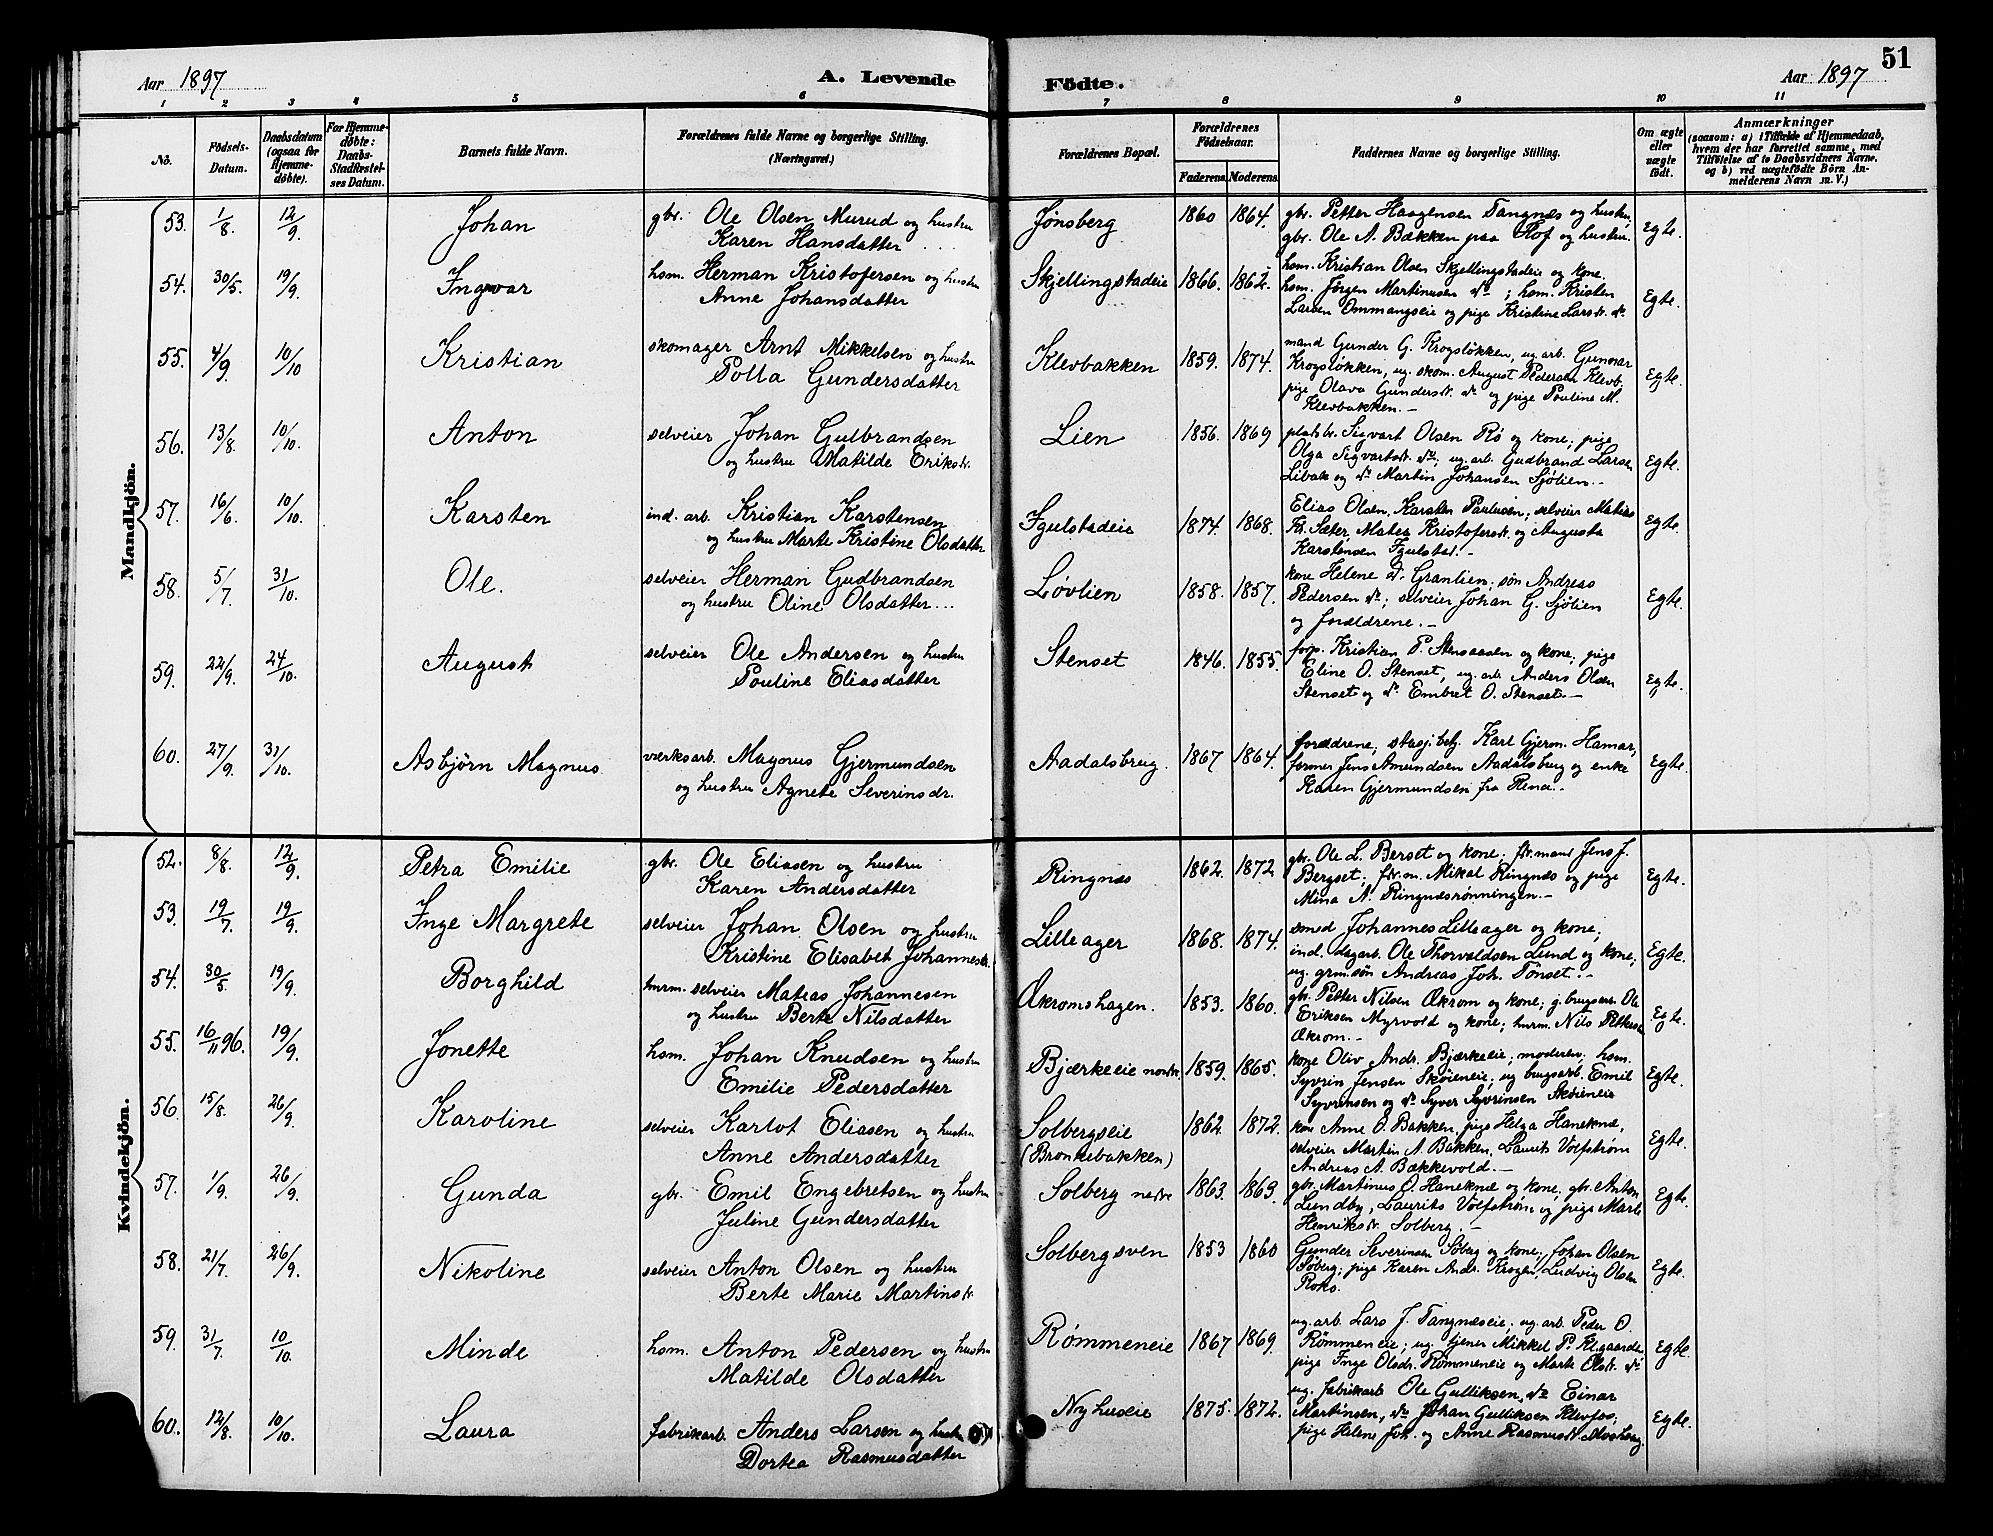 51
Aar 1897
A. Levende
Födte.
Aar 1897
1 2 3 4 5 6 7 8 9 10 11
No.
Födsels-
Datum.
Daabsdatum
(ogsaa for
Hjemme-
døbte).
For Hjemme-
døbte:
Daabs-
Stadfæstel-
ses Datum.
Barnets fulde Navn.
Forældrenes fulde Navne og borgerlige Stilling.
(Næringsvei.)
Forældrenes Bopæl.
Forældrenes
Födselsaar.
Faderens. Moderens.
Faddernes Navne og borgerlige Stilling.
Om ægte
eller
uægte
födt.
Anmærkninger
(saasom: a) i Tilfælde af Hjemmedaab,
hvem der har forrettet samme, med
Tilføielse af to Daabsvidners Navne.
og b) ved uægtefødte Börn An-
melderens Navn m. V.)
Mandkjön.
53. 1/8. 12/9 Johan gbr. Ole Olsen Murud og hustru
Karen Hansdatter
Jønsberg 1860 1864. gbr. Petter Haagensen Tangnæs og hustru,
gbr. Ole A. Bækken paa Hof og hustru. Egte.
54. 30/5. 19/9 Ingvar hsm. Herman Kristofersen og hustru
Anne Johansdatter
Skjellingstadeie 1866. 1862. hsm. Kristian Olsen Skjellingstadeie og kone.
hsm. Jørgen Martinusen do; hsm. Kristen
Larsen Ommangseie og pige Kristine Larsdr. do Egte.
55. 4/9. 10/10 Kristian skomager Arnt Mikkelsen og hustru
Polla Gundersdatter
Klevbakken 1859. 1874. mand Gunder G. Krogsløkken, ug. arb. Gunvar
Krogsløkken, ug. skom. August Pedersen Klevb.
pige Olava Gundersdr. do og pige Pouline M.
Klevbakken.— Egte.
56. 13/8. 10/10. Anton selveier Johan Gulbrandsen
og hustru Matilde Eriksdr.
Lien 1856. 1869 pladsbr. Sigvart Olsen Rø og kone; pige
Olga Sigvartsdr. do; ug. arb. Gudbrand Larsen
Libak og do Martin Johansen Sjølien.— Egte.
57. 16/6. 10/10. Karsten ind. arb. Kristian Karstensen
og hustru Marte Kristine Olsdatter
Igulstadeie 1874. 1868. Elias Olsen, Karsten Paulsen; selveier Matias
Kr. Sæter, Matea Kristofersdr. og Augusta
Karstensen Igulstad.— Egte.
58. 5/7. 31/10. Ole. selveier Herman Gudbrandsen
og hustru Oline Olsdatter
Løvlien 1858. 1857. kone Helene A. Granlien; søn Andreas
Pedersen do; selveier Johan G. Sjølien
og forældrene.— Egte.
59. 22/9. 24/10. August selveier Ole Andersen og hustru
Pouline Eliasdatter
Stenset 1846. 1855. forp. Kristian P. Stensaasen og kone, pige
Eline O. Stenset, ug. arb. Anders Olsen
Stenset og do Embret O. Stenset.— Egte.
60. 27/9. 31/10. Asbjørn Magnus værksarb. Magnus Gjermundsen
og hustru Agnete Severinsdr.
Aadalsbrug. 1867 1864. forældrene, stasj. betj. Karl Gjerm. Hamar,
former Jens Amundsen Aadalsbrug og enke
Karen Gjermundsen fra Rena.— Egte.
Kvindekjön.
52. 8/8. 12/9. Petra Emilie gbr. Ole Eliasen og hustru
Karen Andersdatter
Ringnæs 1862. 1872 gbr. Ole L. Berset og kone, fhv. mand Jens J.
Bergset; Mikal Ringnæs og pige
Mina A. Ringnæsrønningen.— Egte.
53. 19/7. 19/9. Inge Margrete selveier Johan Olsen og hustru
Kristine Elisabet Johannesdr.
Lilleager 1868. 1874. smed Johannes Lilleager og kone;
ind. dagarb. Ole Thorvaldsen Lund og kone;
ug. grm. søn Andreas Joh. Tønset.— Egte.
54. 30/5. 19/9. Borghild tmrm. selveier Matias Johannesen
og hustru Berte Nilsdatter
Økromshagen. 1853. 1860. gbr. Petter Nilsen Økrom og kone; g. brugsarb. Ole
Eriksen Myrvold og kone; tmrm. Nils Pettersen
Økrom.— Egte.
55. 16/11 96. 19/9. Jonette hsm. Johan Knudsen og hustru
Emilie Pedersdatter
Bjærkeeie nordre. 1859. 1865. kone Oliv Andr. Bjærkeeie; moderen; hsm.
Syvrin Jensen Skøieneie; ug brugsarb. Emil
Syvrinsen og do Syver Syvrinsen Skøieneie Egte.
56. 15/8. 26/9. Karoline selveier Karlot Eliasen og hustru
Anne Andersdatter
Solbergseie
(Bronkebakken) 1862. 1872. kone Anne O. Bakken, pige Helga Haneknæ,
selveier Martin A. Bakken, Laurits Volfstrøm
Andreas A. Bækkevold.— Egte.
57. 1/9. 26/9. Gunda gbr. Emil Engebretsen og hustru
Juline Gundersdatter
Solberg nedre 1863. 1863. gbr. Martinus O. Haneknæ og kone; gbr. Anton
Lundby, Laurits Volfstrøm og pige Marte
Henriksdr. Solberg.— Egte.
58. 21/7. 26/9. Nikoline selveier Anton Olsen og hustru
Berte Marie Martinsdr.
Solbergsven 1853 1860 Gunder Severinsen Søberg og kone, Johan Olsen
Søberg; pige Karen Andr. Krogen, Ludvig Olsen
Roko. Egte.
59. 31/7. 10/10. Minde hsm. Anton Pedersen og hustru
Matilde Olsdatter
Rømmeneie 1867 1869. ug. arb. Lars J. Tangnæseie, ug. arb. Peder O.
Rømmeneie; ug. tjener Mikkel P. Kl
pige Inge Olsdr. Rømmeneie og Marte Olsdr. do Egte.
60. 12/8. 10/10. Laura fabrikarb. Anders Larsen og hustru
Dortea Rasmusdatter
Nyhuseie 1875. 1872. ug. fabrikarb Ole Gulliksen, do Einar
Martinsen, do Johan Gulliksen Klevfos;
pige Helene Joh. og Anne Rasmusdr. Moshaug. Egte.